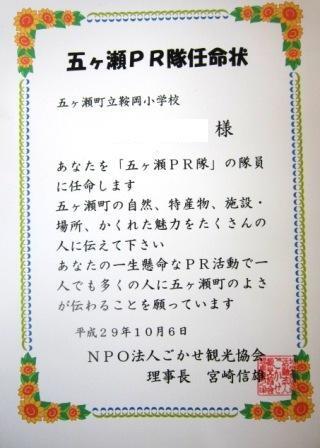 五ヶ瀬PR隊任命状
五ヶ瀬町立鞍岡小学校
様
あなたを「五ヶ瀬PR隊」の隊員
に任命します
五ヶ瀬町の自然、特産物、施設・
場所、かくれた魅力をたくさんの
人に伝えて下さい
あなたの一生懸命なPR活動で一
人でも多くの人に五ヶ瀬町のよさ
が伝わることを願っています
平成29年10月6日
NPO法人ごかせ観光協会
理事長 宮崎信雄